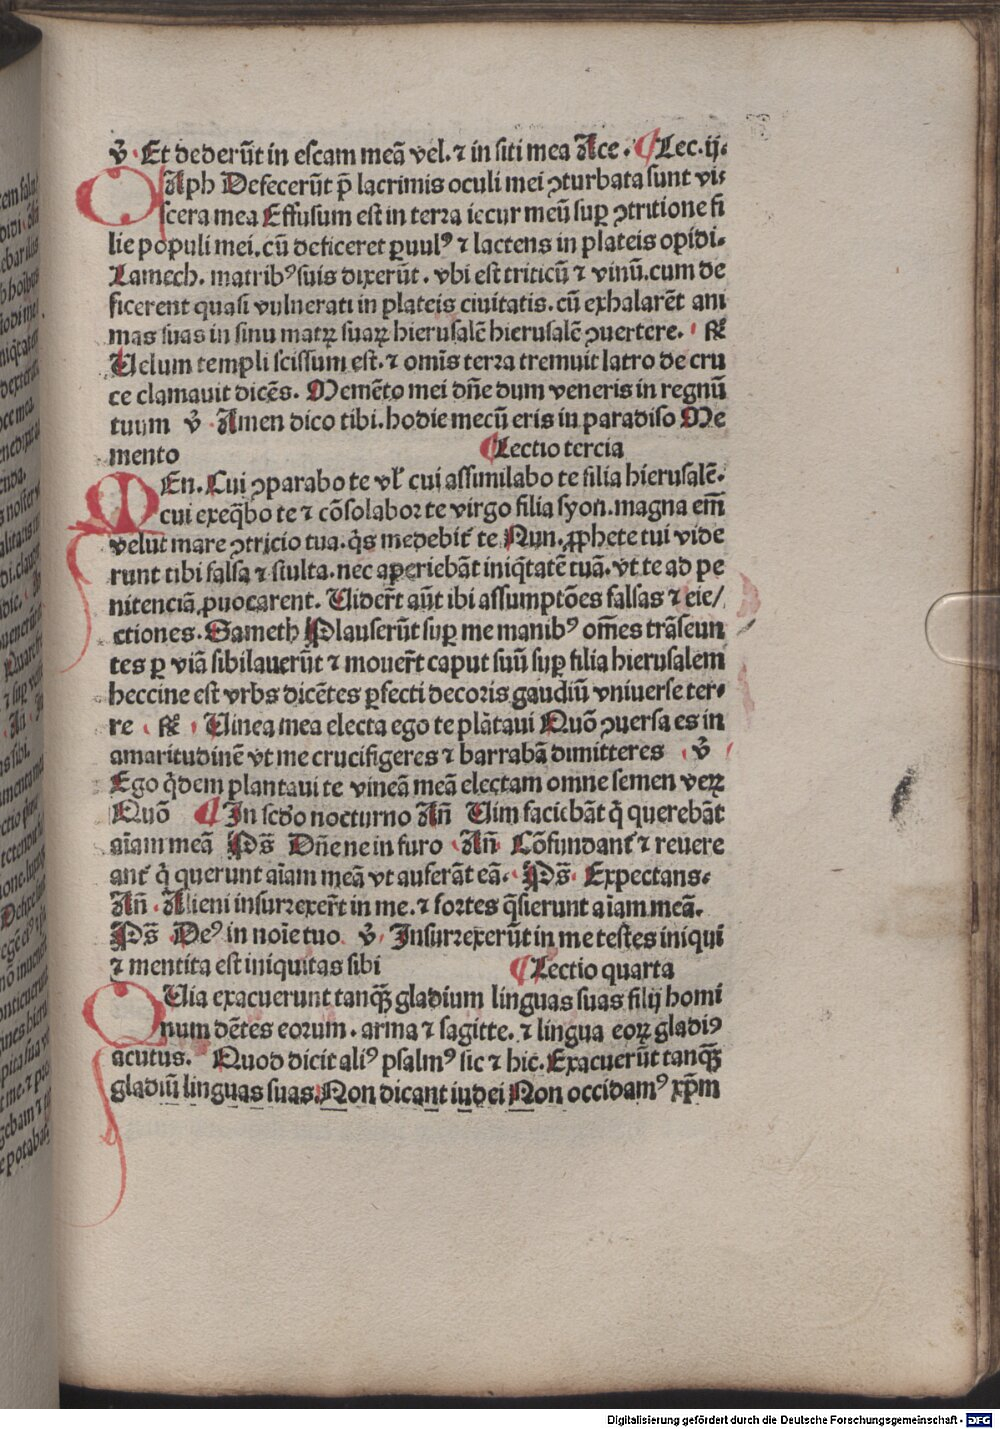 v̄ · Et dederūt in escam meā vel. ⁊ in siti mea Ace . ¶ Lec. ij.
CAph Defecerūt p̄ lacrimis oculi mei ꝯturbata sunt vi-
scera mea Effusum est in terra iecur meū suꝑ ꝯtritione fi
lie populi mei. cū deficeret ꝑuulꝰ ⁊ lactens in plateis opidi.
Lamech. matribꝰ suis dixerūt. vbi est triticū ⁊ vinū. cum de
ficerent quasi vulnerati in plateis ciuitatis. cū exhalarēt ani
mas suas in sinu matꝝ suaꝝ hierusalē hierusalē ꝯuertere. ℟
Uelum templi scissum est. ⁊ om̄is terra tremuit latro de cru
ce clamauit dicēs. Memēto mei dn̄e dum veneris in regnū
tuum v̄ · Amen dico tibi. hodie mecū eris in paradiso Me
mento
¶ Lectio tercia
MEn. Cui ꝯparabo te vl̓ cui assimilabo te filia hierusalē.
cui exeq̄bo te ⁊ cōsolabor te virgo filia syon. magna em̄
velut mare ꝯtricio tua. q̇s medebit̓ te Nun. ꝓphete tui vide
runt tibi falsa ⁊ stulta. nec aperiebāt iniq̇tatē tuā. vt te ad pe
nitenciā ꝓuocarent. Uider̄t aūt ibi assumptōes falsas ⁊ eie/
ctiones. Sameth Plauserūt suꝑ me manibꝰ om̄es trāseun
tes ꝑ viā sibilauerūt ⁊ mouer̄t caput suū suꝑ filia hierusalem
heccine est vrbs dicētes ꝑfecti decoris gaudiū vniuerse ter-
re · ℟ · Uinea mea electa ego te plātaui Quō ꝯuersa es in
amaritudinē vt me crucifigeres ⁊ barrabā dimitteres · v̄
Ego q̇dem plantaui te vineā meā electam omne semen veꝝ
Quō ¶ In scdo nocturno Añ Uim faciebāt q̇ querebāt
aīam meā Ps̄ Dn̄e ne in furo · Añ Cōfundant̓ ⁊ reuere
ant̓ q̇ querunt aīam meā vt auferāt eā. · Ps̄ · Expectans.
Añ · Alieni insurrexer̄t in me. ⁊ fortes q̄sierunt aīam meā.
Ps̄ Deꝰ in noīe tuo v̄ · Insurrexerūt in me testes iniqui
⁊ mentita est iniquitas sibi
¶ Lectio quarta
QUia exacuerunt tanqꝫ gladium linguas suas filij homi
num dētes eorum. arma ⁊ sagitte. ⁊ lingua eoꝝ gladiꝰ
acutus. Quod dicit aliꝰ psalmꝰ sic ⁊ hic. Exacuerūt tanqꝫ
gladiū linguas suas. Non dicant iudei Non occidamꝰ xp̄m
Digitalisierung gefördert durch die Deutsche Forschungsgemeinschaft - DFG